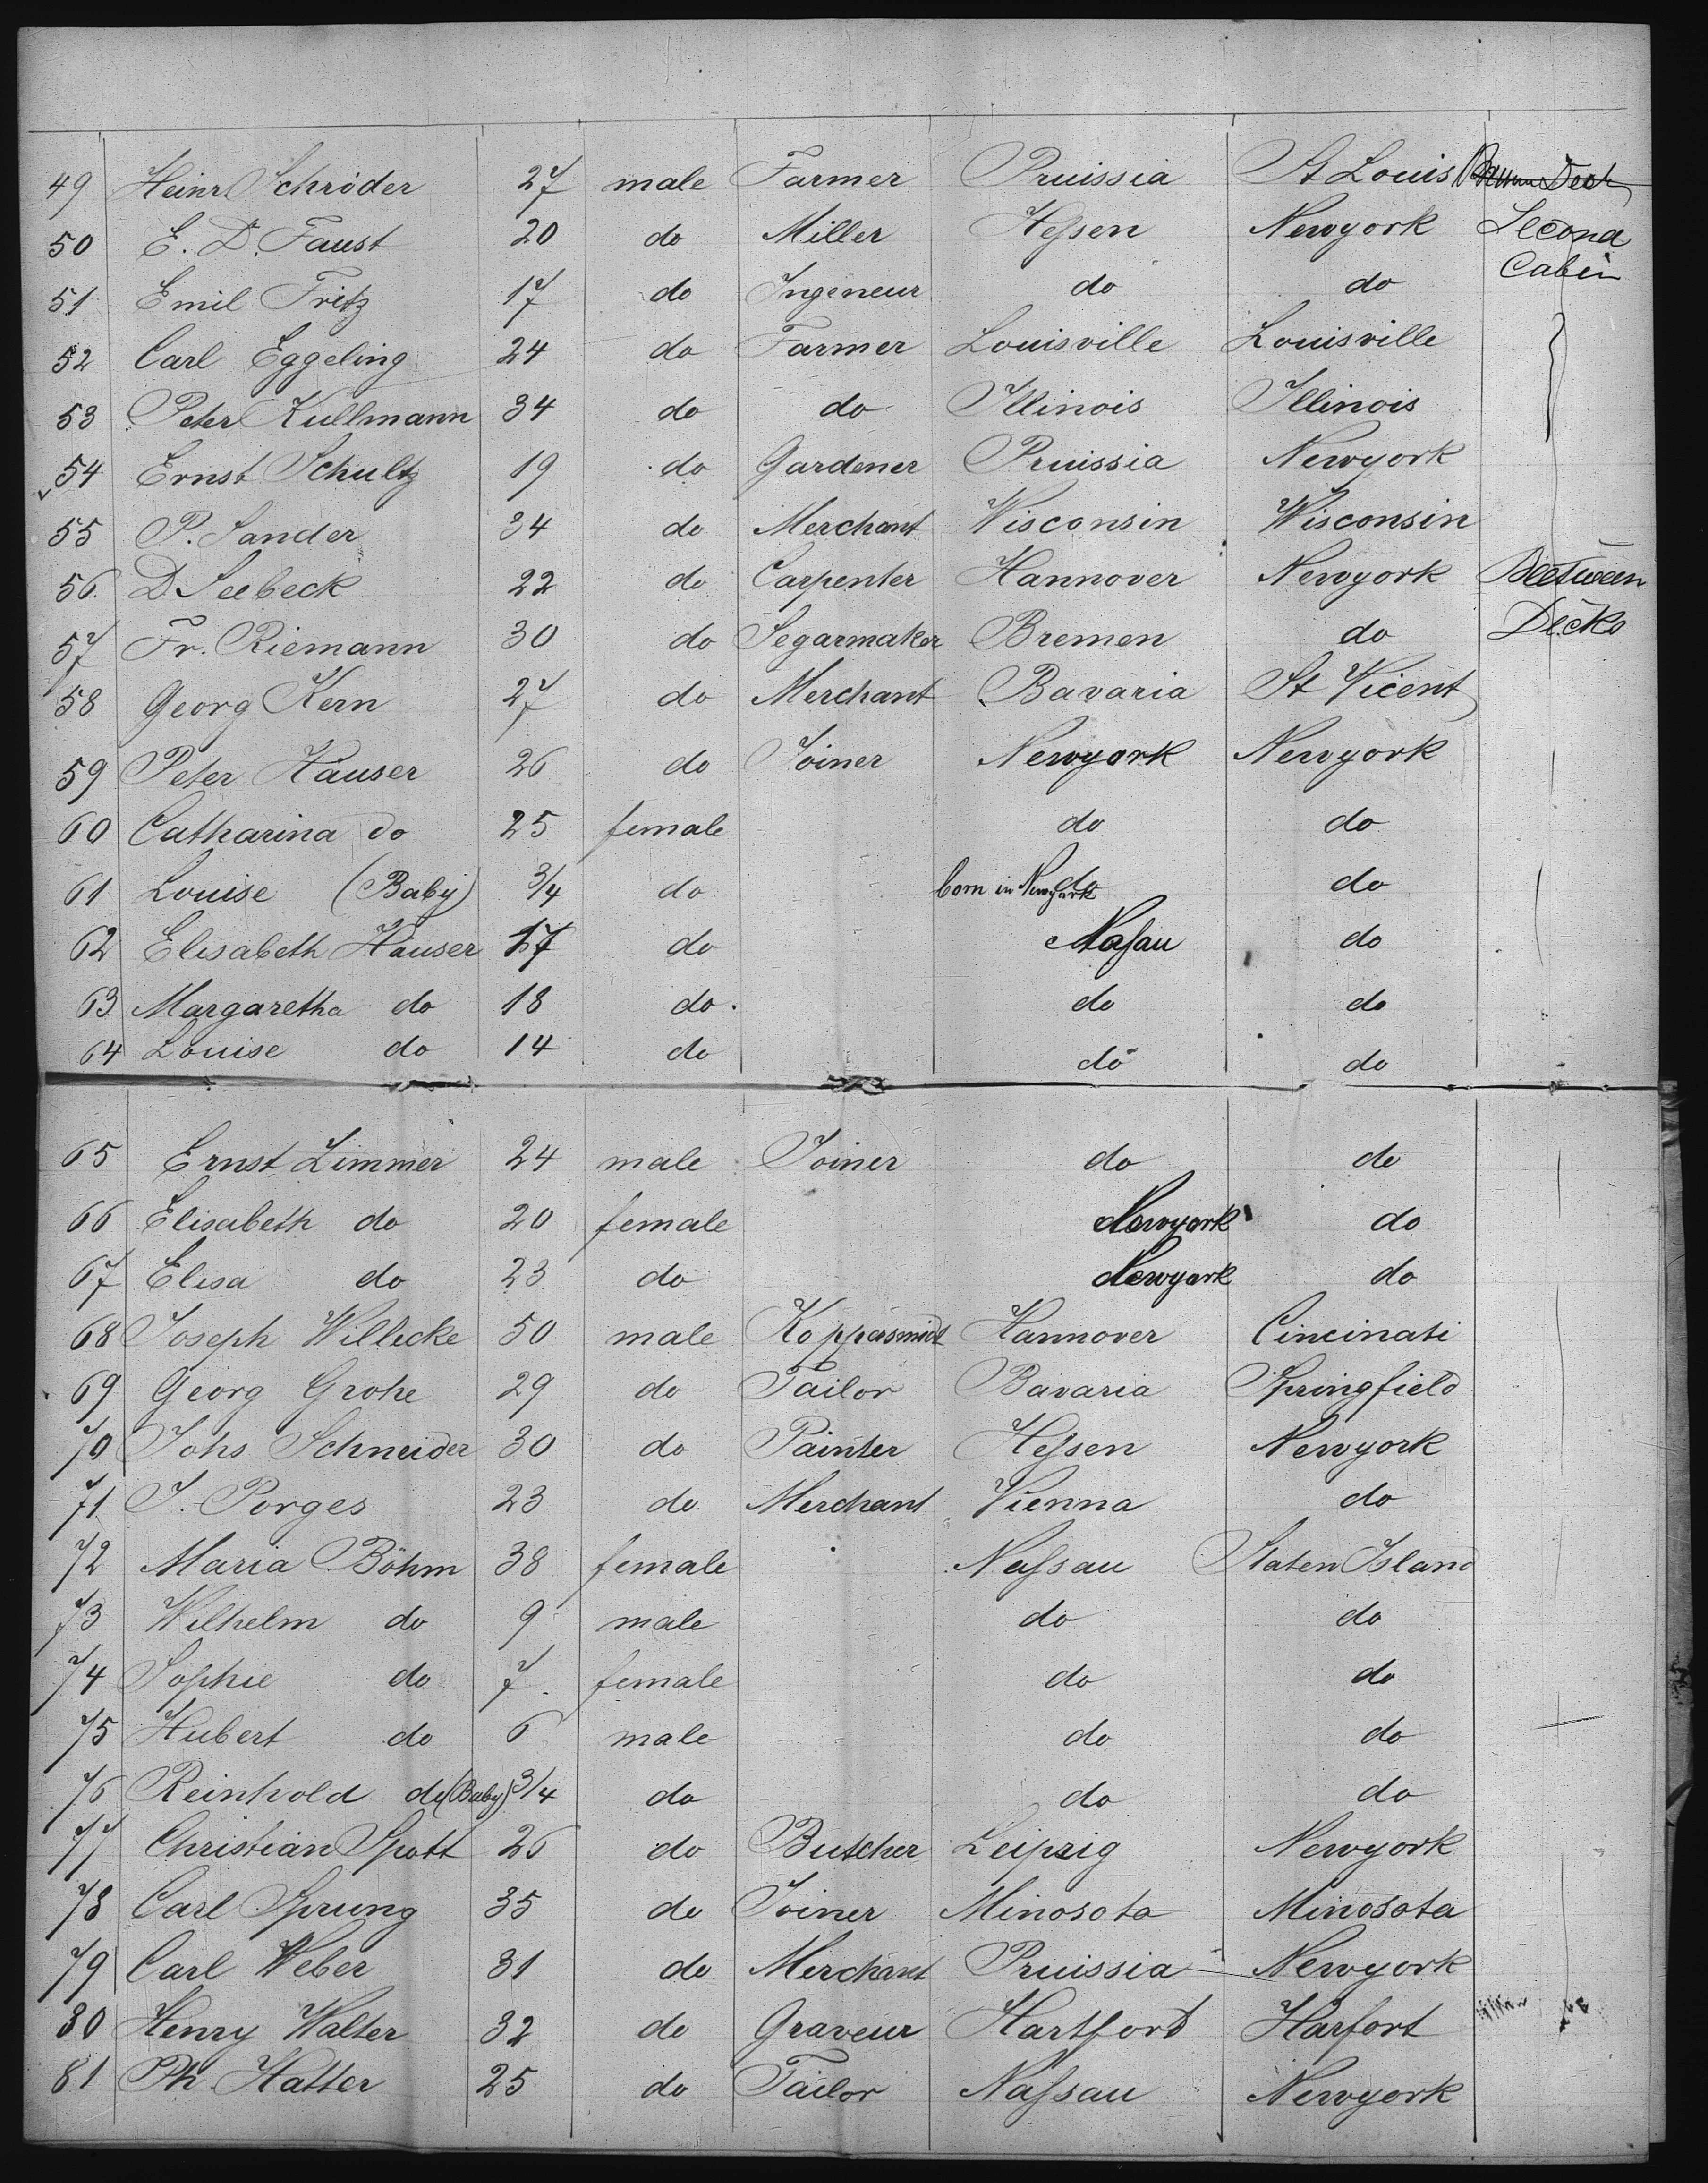 49 Heinr Schröder 27 male Farmer Pruissia St Louis
50 E. D. Faust 20 do Miller Hessen Newyork Second
51 Emil Fritz 17 do Ingeneur do do Cabin
52 Carl Eggeling 24 do Farmer Louisville Louisville
53 Peter Kullmann 34 do do Illinois Illinois
54 Ernst Schultz 19 do Gardener Pruissia Newyork
55 P. Sander 34 do Merchant Wisconsin Wisconsin
56 D Seebeck 22 do Carpenter Hannover Newyork Beetween
57 Fr. Riemann 30 do Segarmaker Bremen do Decks
58 Georg Kern 27 do Merchant Bavaria St Vicent
59 Peter Häuser 26 do Joiner Newyork Newyork
60 Catharina do 25 female do do
61 Louise (Baby) 3/4 do born in Newyork do
62 Elisabeth Häuser 17 do Nassau do
63 Margaretha do 18 do do do
64 Louise do 14 do do do
65 Ernst Zimmer 24 male Joiner do do
66 Elisabeth do 20 female Newyork do
67 Elisa do 23 do Newyork do
68 Joseph Willecke 50 male Koppersmidt Hannover Cincinati
69 Georg Grohe 29 do Tailor Bavaria Springfield
70 Johs Schneider 30 do Painter Hessen Newyork
71 J. Porges 23 do Merchant Vienna do
72 Maria Böhm 38 female Nassau Staten Island
73 Wilhelm do 9 male do do
74 Sophie do 7 female do do
75 Hubert do 6 male do do
76 Reinhold do (Baby) 3/4 do do do
77 Christian Spott 26 do Butcher Leipzig Newyork
78 Carl Sprung 35 do Joiner Minosota Minosota
79 Carl Weber 31 do Merchant Pruissia Newyork
80 Henry Walter 32 do Graveur Hartford Harfort
81 Ph. Hatter 25 do Tailor Nassau Newyork